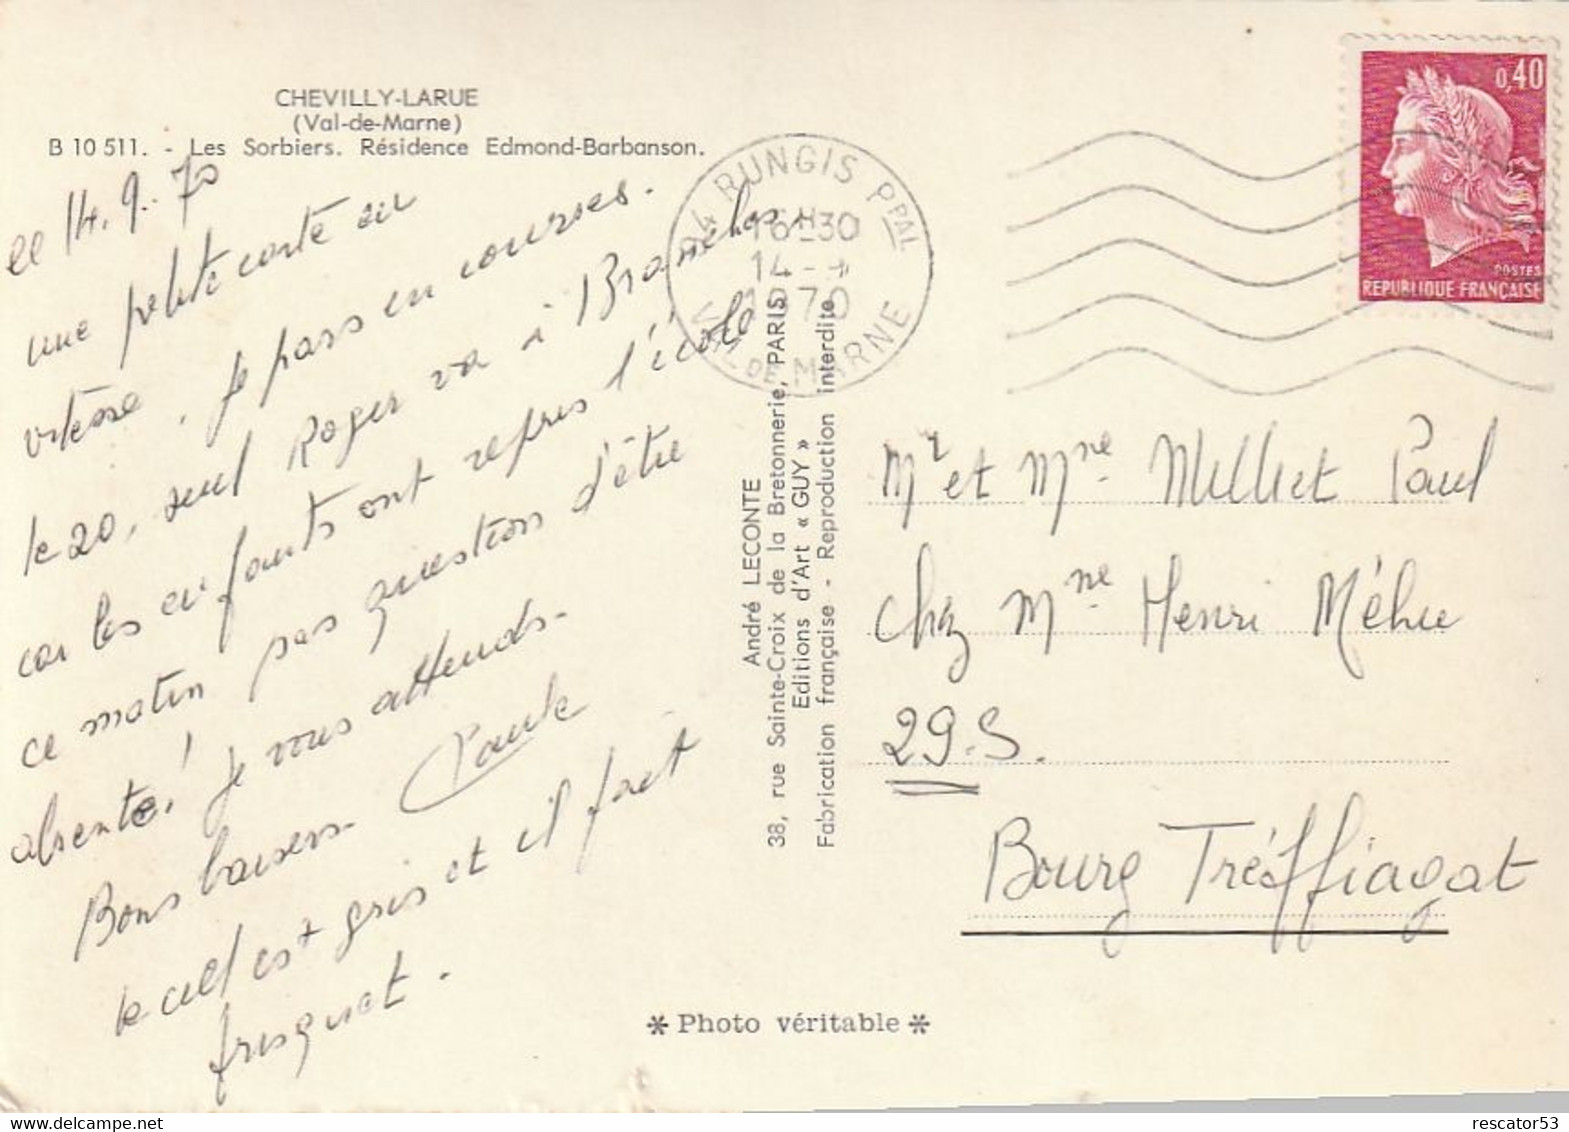 CHEVILLY-LARUE
(Val-de-Marne)
B 10 511. - Les Sorbiers. Résidence Edmond-Barbanson.
le 14.9.70
une petite carte en
vitesse. Je pars en courses.
le 20, seul Roger va à
car les enfants ont repris l'école
ce matin pas question d'être
absente! Je vous attends-
Bons baisers- Paule
le ciel est gris et il fait
frisquet.
94 RUNGIS PPAL
16H30
14-9
1970
VAL DE MARNE
0,40
POSTES
REPUBLIQUE FRANÇAISE
André LECONTE
38, rue Sainte-Croix de la Bretonnerie, PARIS
Editions d'Art « GUY »
Fabrication française - Reproduction interdite
Mr et Mme Milliet Paul
chez Mme Henri Méhu
29.S.
Bourg Tréffiagat
* Photo véritable *
rescator53